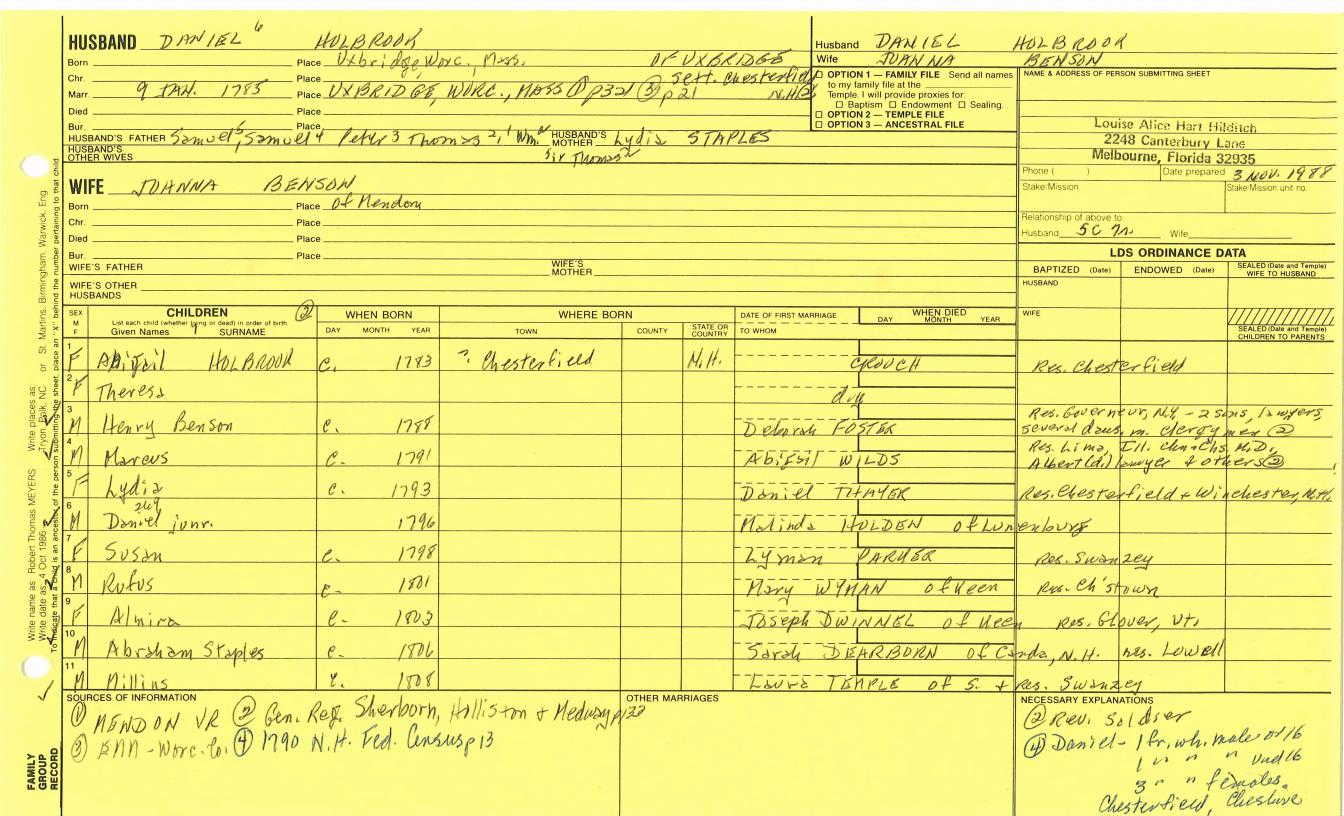 HUSBAND DANIEL 6 HOLBROOK
Born Place Uxbridge, Worc., Mass. OF UXBRIDGE
Chr. Place Sett. Chesterfield
Marr. 9 JAN. 1785 Place UXBRIDGE, WORC., MASS ① p321 ③ p21 N.H.②
Died Place
Bur. Place
HUSBAND'S FATHER Samuel5, Samuel4 Peter3 Thomas2,1 Wm. HUSBAND'S MOTHER Lydia STAPLES
HUSBAND'S OTHER WIVES Sir Thomas
WIFE JOANNA BENSON
Born Place of Mendon
Chr. Place
Died Place
Bur. Place
WIFE'S FATHER WIFE'S MOTHER
WIFE'S OTHER HUSBANDS
Husband DANIEL HOLBROOK
Wife JOANNA BENSON
OPTION 1 — FAMILY FILE Send all names
to my family file at the
Temple. I will provide proxies for:
Baptism Endowment Sealing.
OPTION 2 — TEMPLE FILE
OPTION 3 — ANCESTRAL FILE
NAME & ADDRESS OF PERSON SUBMITTING SHEET
Louise Alice Hart Hilditch
2248 Canterbury Lane
Melbourne, Florida 32935
Phone ( ) Date prepared 3 NOV. 1988
Stake/Mission Stake/Mission unit no.
Relationship of above to:
Husband 5C Wife
LDS ORDINANCE DATA
BAPTIZED (Date) ENDOWED (Date) SEALED (Date and Temple) WIFE TO HUSBAND
HUSBAND
WIFE
SEALED (Date and Temple) CHILDREN TO PARENTS
SEX M F CHILDREN ② WHEN BORN WHERE BORN DATE OF FIRST MARRIAGE WHEN DIED
List each child (whether living or dead) in order of birth
Given Names SURNAME DAY MONTH YEAR TOWN COUNTY STATE OR COUNTRY TO WHOM DAY MONTH YEAR
1 F Abigail HOLBROOK c. 1783 ?. Chesterfield N.H. CROUCH Res. Chesterfield
2 F Theresa d.y
3 M Henry Benson c. 1788 Deborah FOSTER Res. Governeur, N.Y. - 2 sons, lawyers, several daus. m. clergymen ②
4 M Marcus c. 1791 Abigail WILDS Res. Lima, Ill. M.D., Albert lawyer & others ②
5 F Lydia c. 1793 Daniel THAYER Res. Chesterfield + Winchester, N.H.
6 M Daniel junr. 1796 Malinda HOLDEN of Lunenburg
7 F Susan c. 1798 Lyman PARKER Res. Swanzey
8 M Rufus c. 1801 Mary WYMAN of Keen Res. Ch'stown
9 F Almira c. 1803 Joseph DWINNEL of Keen Res. Glover, Vt.
10 M Abraham Staples c. 1806 Sarah DEARBORN of Canda, N.H. res. Lowell
11 M Millins c. 1808 Laura TEMPLE of S. + Res. Swanzey
SOURCES OF INFORMATION
① MENDON VR ② Gen. Reg. Sherborn, Holliston + Medway p133
③ Worc. Co. ④ 1790 N.H. Fed. Census p13
OTHER MARRIAGES
NECESSARY EXPLANATIONS
② Rev. Soldier
④ Daniel - 1 fr. wh. male or 16
1 " " " und 16
3 " " females.
Chesterfield, Cheshire
FAMILY GROUP RECORD
Write name as: Robert Thomas MEYERS Write places as: Tryon, Polk, NC or St. Martins, Birmingham, Warwick, Eng.
Write date as: 4 Oct 1986
To indicate that a child is an ancestor of the person submitting the sheet, place an "X" behind the number pertaining to that child